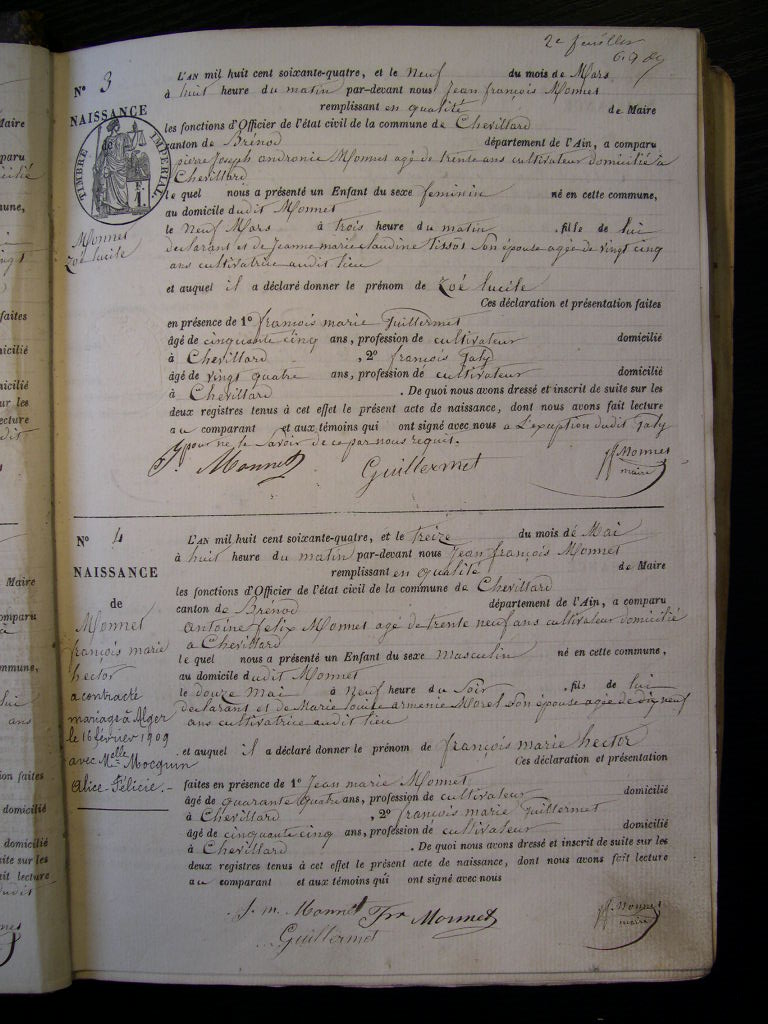 2e feuillet
N° 3
NAISSANCE
de
TIMBRE IMPÉRIAL
F. 1.
Monnet
Zoé lucile
L'AN mil huit cent soixante-quatre, et le Neuf du mois de Mars
à huit heure du matin par-devant nous Jean françois Monnet
remplissant en qualité de Maire
les fonctions d'Officier de l'état civil de la commune de Chevillard
canton de Brénod département de l'Ain, a comparu
pierre Joseph andronic Monnet agé de trente ans cultivateur domicilié à
Chevillard
le quel nous a présenté un Enfant du sexe feminin né en cette commune,
au domicile dudit Monnet
le Neuf Mars à trois heure du matin , fille de lui
declarant et de Jeanne marie claudine Tissot son épouse agée de vingt cinq
ans cultivatrice audit lieu
et auquel il a déclaré donner le prénom de Zoé lucile
Ces déclaration et présentation faites
en présence de 1° françois marie Guillermet
âgé de cinquante cinq ans, profession de cultivateur domicilié
à Chevillard , 2° françois
âgé de vingt quatre ans, profession de cultivateur domicilié
à Chevillard . De quoi nous avons dressé et inscrit de suite sur les
deux registres tenus à cet effet le présent acte de naissance, dont nous avons fait lecture
au comparant et aux témoins qui ont signé avec nous a L'exception dudit
pour ne le savoir de ce par nous requit.
Monnet Guillermet Monnet
maire
N° 4
NAISSANCE
de
Monnet
françois marie
hector
a contracté
mariage à Alger
le 16 février 1909
avec Melle Mocquin
Alice-Félicie.-
L'AN mil huit cent soixante-quatre, et le treize du mois de Mai
à huit heure du matin par-devant nous Jean françois Monnet
remplissant en qualité de Maire
les fonctions d'Officier de l'état civil de la commune de Chevillard
canton de Brénod département de l'Ain, a comparu
antoine felix Monnet agé de trente neuf ans cultivateur domicilié
a Chevillard
le quel nous a présenté un Enfant du sexe masculin né en cette commune,
au domicile dudit Monnet
le douze mai à Neuf heure du soir , fils de lui
declarant et de Marie louise armenie Morel son épouse agée de neuf
ans cultivatrice audit lieu
et auquel il a déclaré donner le prénom de françois marie hector
Ces déclaration et présentation
faites en présence de 1° Jean marie Monnet
âgé de quarante quatre ans, profession de cultivateur domicilié
à Chevillard , 2° françois marie Guillermet
âgé de cinquante cinq ans, profession de cultivateur domicilié
à Chevillard . De quoi nous avons dressé et inscrit de suite sur les
deux registres tenus à cet effet le présent acte de naissance, dont nous avons fait lecture
au comparant et aux témoins qui ont signé avec nous
J. m. Monnet Fx Monnet Monnet
maire
Guillermet